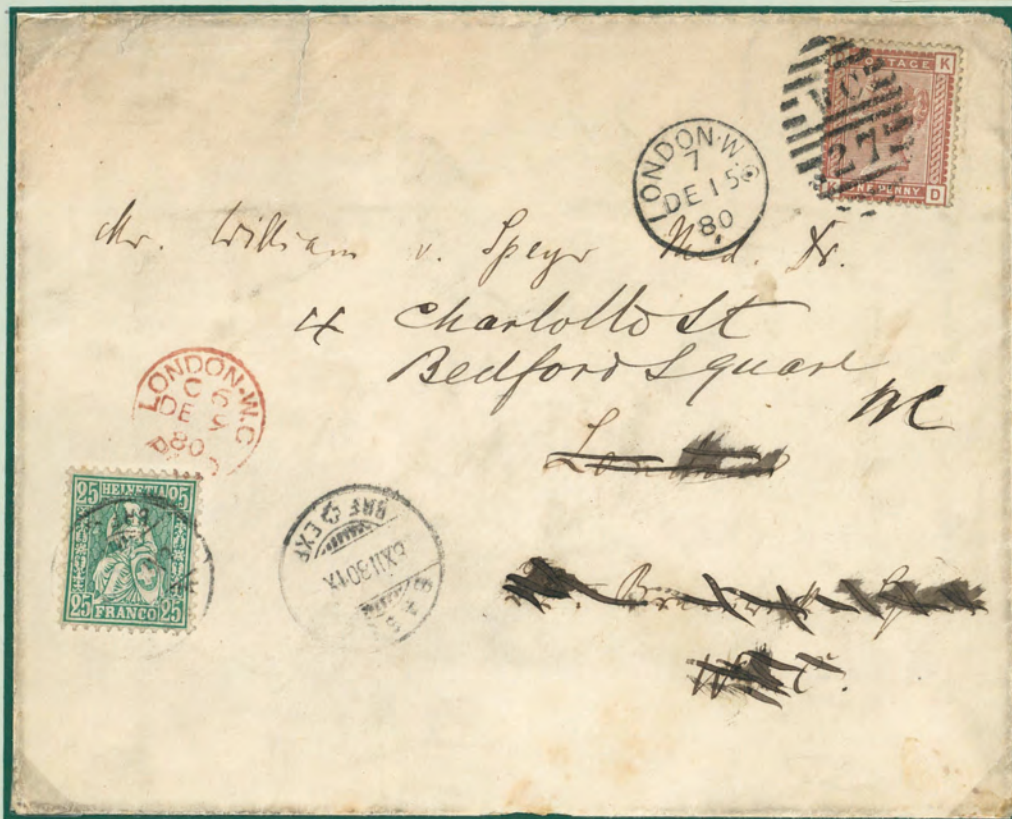 POSTAGE K
WC
27
ONE PENNY D
LONDON·W.C
7
DE 15
80
Mr. William v. Speyr Med. Dr.
4 Charlotte St
Bedford Square
WC
London
LONDON·W.C
C
DE
80
PAID
25 HELVETIA 25
25 FRANCO 25
BRF EXP
XII.80